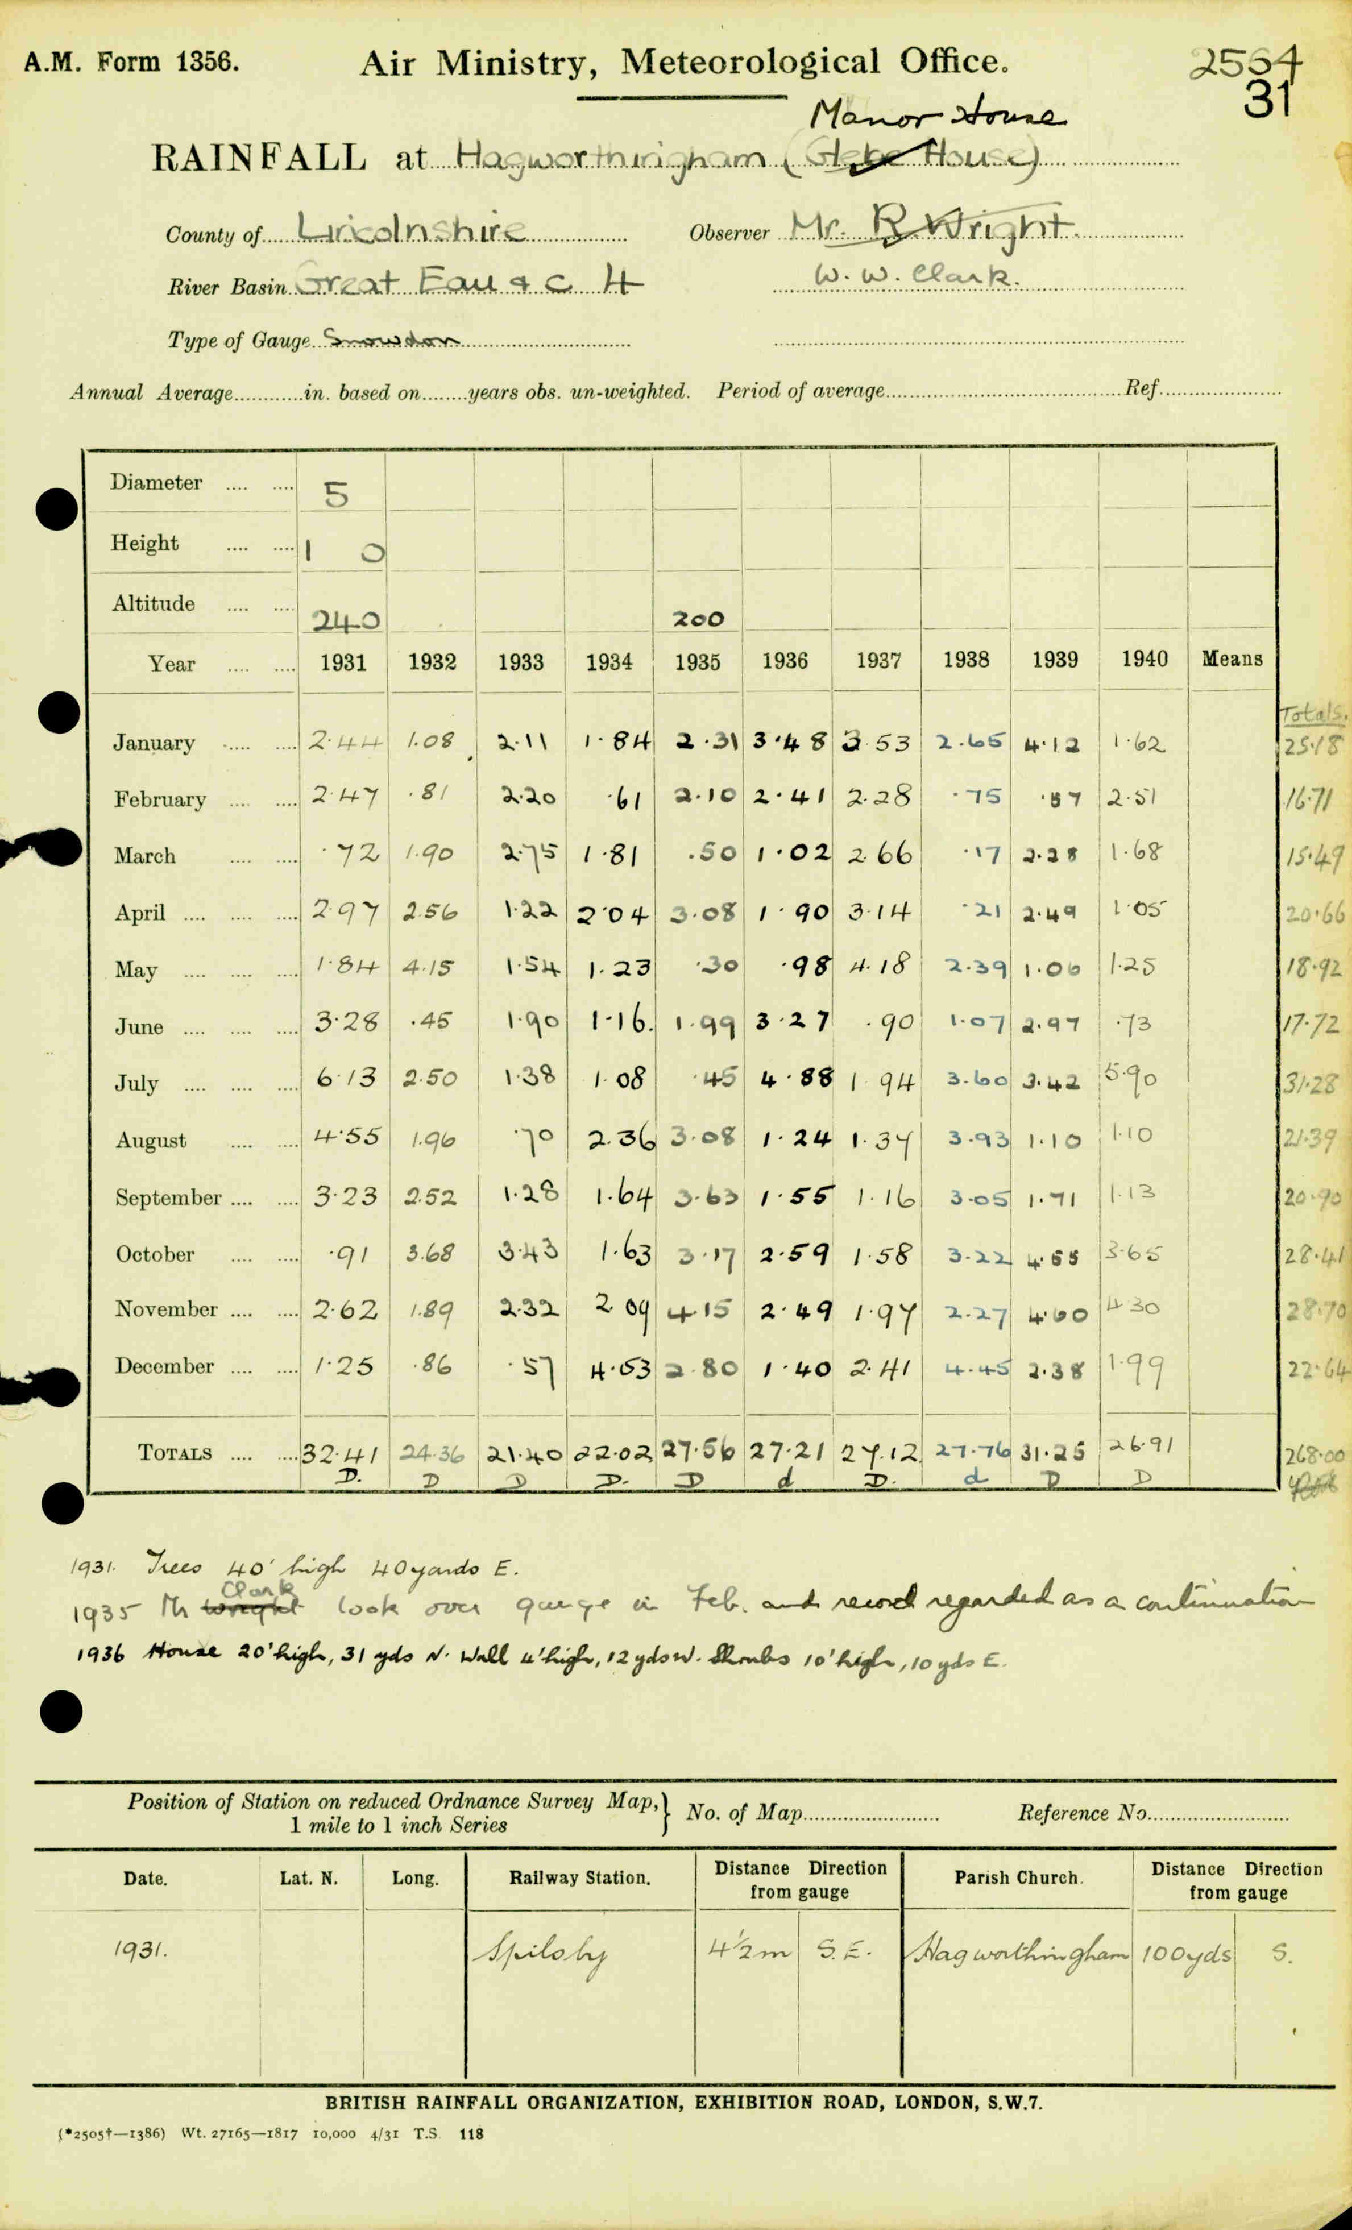 A.M. Form 1356. Air Ministry, Meteorological Office. 2564
31
Manor House
RAINFALL at Hagworthingham (Glebe House)
County of Lincolnshire Observer Mr. R Wright.
River Basin Great Eau & c 4 W. W. Clark.
Type of Gauge Snowdon
Annual Average in. based on years obs. un-weighted. Period of average Ref.
Diameter 5
Height 1 0
Altitude 240 200
Year 1931 1932 1933 1934 1935 1936 1937 1938 1939 1940 Means
Totals.
January 2.44 1.08 2.11 1.84 2.31 3.48 3.53 2.65 4.12 1.62 25.18
February 2.47 .81 2.20 .61 2.10 2.41 2.28 .75 .57 2.51 16.71
March .72 1.90 2.75 1.81 .50 1.02 2.66 .17 2.28 1.68 15.49
April 2.97 2.56 1.22 2.04 3.08 1.90 3.14 .21 2.49 1.05 20.66
May 1.84 4.15 1.54 1.23 .30 .98 4.18 2.39 1.06 1.25 18.92
June 3.28 .45 1.90 1.16. 1.99 3.27 .90 1.07 2.97 .73 17.72
July 6.13 2.50 1.38 1.08 .45 4.88 1.94 3.60 3.42 5.90 31.28
August 4.55 1.96 .70 2.36 3.08 1.24 1.37 3.93 1.10 1.10 21.39
September 3.23 2.52 1.28 1.64 3.63 1.55 1.16 3.05 1.71 1.13 20.90
October .91 3.68 3.43 1.63 3.17 2.59 1.58 3.22 4.55 3.65 28.41
November 2.62 1.89 2.32 2.09 4.15 2.49 1.97 2.27 4.60 4.30 28.70
December 1.25 .86 .57 4.53 2.80 1.40 2.41 4.45 2.38 1.99 22.64
TOTALS 32.41 24.36 21.40 22.02 27.56 27.21 27.12 27.76 31.25 26.91 268.00
D. D D D. D d D. d D D
1931. Trees 40' high 40 yards E.
Clark
1935 Mr Wright took over gauge in Feb. and record regarded as a continuation
1936 House 20' high, 31 yds N. Wall 4' high, 12 yds W. Shrubs 10' high, 10 yds E.
Position of Station on reduced Ordnance Survey Map, No. of Map Reference No.
1 mile to 1 inch Series
Date. Lat. N. Long. Railway Station. Distance Direction from gauge Parish Church. Distance Direction from gauge
1931. Spilsby 4½m S.E. Hagworthingham 100yds S.
BRITISH RAINFALL ORGANIZATION, EXHIBITION ROAD, LONDON, S.W.7.
(*2505†—1386) Wt. 27165—1817 10,000 4/31 T.S. 118